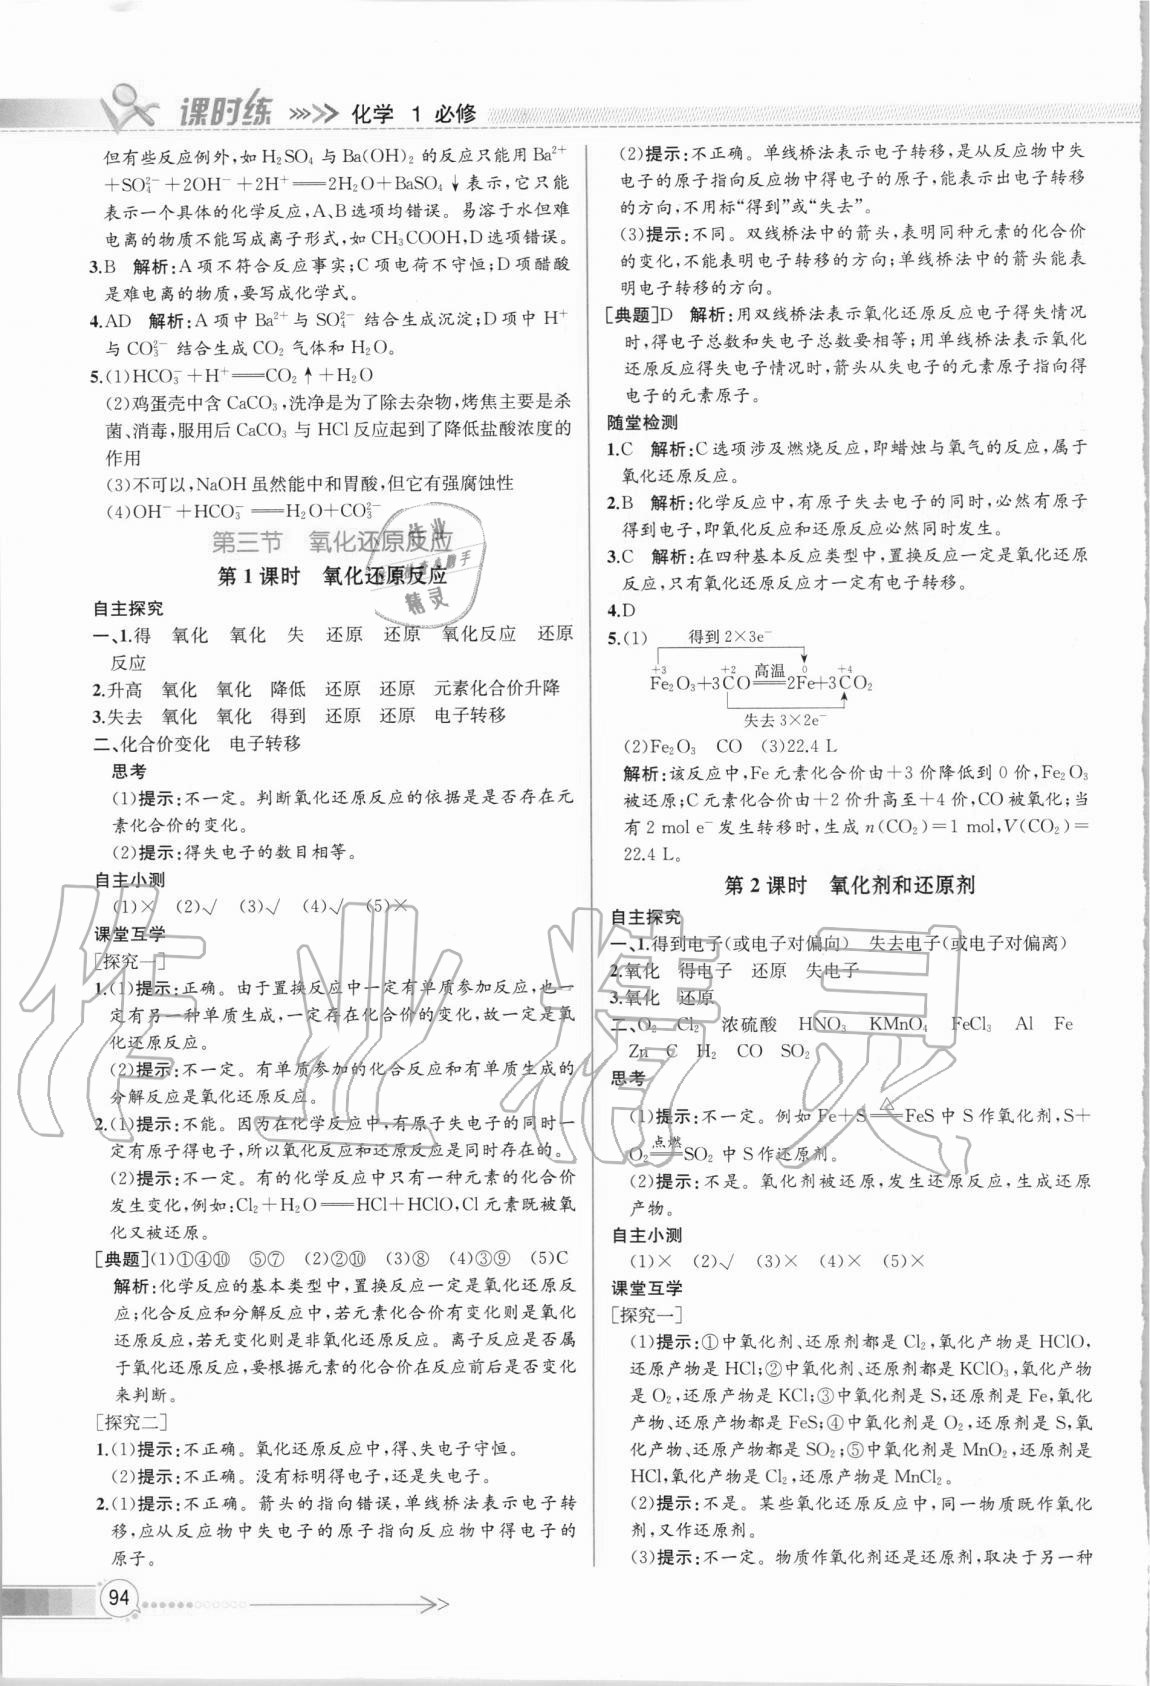 课时练 化学 1 必修
但有些反应例外,如 H₂SO₄ 与 Ba(OH)₂ 的反应只能用 Ba²⁺
+SO₄²⁻+2OH⁻+2H⁺══2H₂O+BaSO₄↓表示,它只能
表示一个具体的化学反应,A、B选项均错误。易溶于水但难
电离的物质不能写成离子形式,如 CH₃COOH,D选项错误。
3.B 解析:A项不符合反应事实;C项电荷不守恒;D项醋酸
是难电离的物质,要写成化学式。
4.AD 解析:A项中 Ba²⁺与 SO₄²⁻ 结合生成沉淀;D项中 H⁺
与 CO₃²⁻ 结合生成 CO₂ 气体和 H₂O。
5.(1)HCO₃⁻+H⁺══CO₂↑+H₂O
(2)鸡蛋壳中含 CaCO₃,洗净是为了除去杂物,烤焦主要是杀
菌、消毒,服用后 CaCO₃ 与 HCl 反应起到了降低盐酸浓度的
作用
(3)不可以,NaOH 虽然能中和胃酸,但它有强腐蚀性
(4)OH⁻+HCO₃⁻══H₂O+CO₃²⁻
第三节 氧化还原反应
第1课时 氧化还原反应
自主探究
一、1.得 氧化 氧化 失 还原 还原 氧化反应 还原
反应
2.升高 氧化 氧化 降低 还原 还原 元素化合价升降
3.失去 氧化 氧化 得到 还原 还原 电子转移
二、化合价变化 电子转移
思考
(1)提示:不一定。判断氧化还原反应的依据是是否存在元
素化合价的变化。
(2)提示:得失电子的数目相等。
自主小测
(1)× (2)√ (3)√ (4)√ (5)×
课堂互学
[探究一]
1.(1)提示:正确。由于置换反应中一定有单质参加反应,也一
定有另一种单质生成,一定存在化合价的变化,故一定是氧
化还原反应。
(2)提示:不一定。有单质参加的化合反应和有单质生成的
分解反应是氧化还原反应。
2.(1)提示:不能。因为在化学反应中,有原子失电子的同时一
定有原子得电子,所以氧化反应和还原反应是同时存在的。
(2)提示:不一定。有的化学反应中只有一种元素的化合价
发生变化,例如:Cl₂+H₂O══HCl+HClO,Cl元素既被氧
化又被还原。
[典题](1)①④⑩ ⑤⑦ (2)②⑩ (3)⑧ (4)③⑨ (5)C
解析:化学反应的基本类型中,置换反应一定是氧化还原反
应;化合反应和分解反应中,若元素化合价有变化则是氧化
还原反应,若无变化则是非氧化还原反应。离子反应是否属
于氧化还原反应,要根据元素的化合价在反应前后是否变化
来判断。
[探究二]
1.(1)提示:不正确。氧化还原反应中,得、失电子守恒。
(2)提示:不正确。没有标明得电子,还是失电子。
2.(1)提示:不正确。箭头的指向错误,单线桥法表示电子转
移,应从反应物中失电子的原子指向反应物中得电子的
原子。
(2)提示:不正确。单线桥法表示电子转移,是从反应物中失
电子的原子指向反应物中得电子的原子,能表示出电子转移
的方向,不用标“得到”或“失去”。
(3)提示:不同。双线桥法中的箭头,表明同种元素的化合价
的变化,不能表明电子转移的方向;单线桥法中的箭头能表
明电子转移的方向。
[典题]D 解析:用双线桥法表示氧化还原反应电子得失情况
时,得电子总数和失电子总数要相等;用单线桥法表示氧化
还原反应得失电子情况时,箭头从失电子的元素原子指向得
电子的元素原子。
随堂检测
1.C 解析:C选项涉及燃烧反应,即蜡烛与氧气的反应,属于
氧化还原反应。
2.B 解析:化学反应中,有原子失去电子的同时,必然有原子
得到电子,即氧化反应和还原反应必然同时发生。
3.C 解析:在四种基本反应类型中,置换反应一定是氧化还原
反应,只有氧化还原反应才一定有电子转移。
4.D
5.(1) 得到 2×3e⁻
+3 +2 高温 0 +4
Fe₂O₃+3CO══2Fe+3CO₂
失去 3×2e⁻
(2)Fe₂O₃ CO (3)22.4 L
解析:该反应中,Fe元素化合价由+3价降低到0价,Fe₂O₃
被还原;C元素化合价由+2价升高至+4价,CO被氧化;当
有 2 mol e⁻ 发生转移时,生成 n(CO₂)=1 mol,V(CO₂)=
22.4 L。
第2课时 氧化剂和还原剂
自主探究
一、1.得到电子(或电子对偏向) 失去电子(或电子对偏离)
2.氧化 得电子 还原 失电子
3.氧化 还原
二、O₂ Cl₂ 浓硫酸 HNO₃ KMnO₄ FeCl₃ Al Fe
Zn C H₂ CO SO₂
思考
(1)提示:不一定。例如 Fe+S══(△)FeS 中 S 作氧化剂,S+
O₂══(点燃)SO₂ 中 S 作还原剂。
(2)提示:不是。氧化剂被还原,发生还原反应,生成还原
产物。
自主小测
(1)× (2)√ (3)× (4)× (5)×
课堂互学
[探究一]
(1)提示:①中氧化剂、还原剂都是 Cl₂,氧化产物是 HClO,
还原产物是 HCl;②中氧化剂、还原剂都是 KClO₃,氧化产物
是 O₂,还原产物是 KCl;③中氧化剂是 S,还原剂是 Fe,氧化
产物、还原产物都是 FeS;④中氧化剂是 O₂,还原剂是 S,氧
化产物、还原产物都是 SO₂;⑤中氧化剂是 MnO₂,还原剂是
HCl,氧化产物是 Cl₂,还原产物是 MnCl₂。
(2)提示:不是。某些氧化还原反应中,同一物质既作氧化
剂,又作还原剂。
(3)提示:不一定。物质作氧化剂还是还原剂,取决于另一种
94
作业精灵